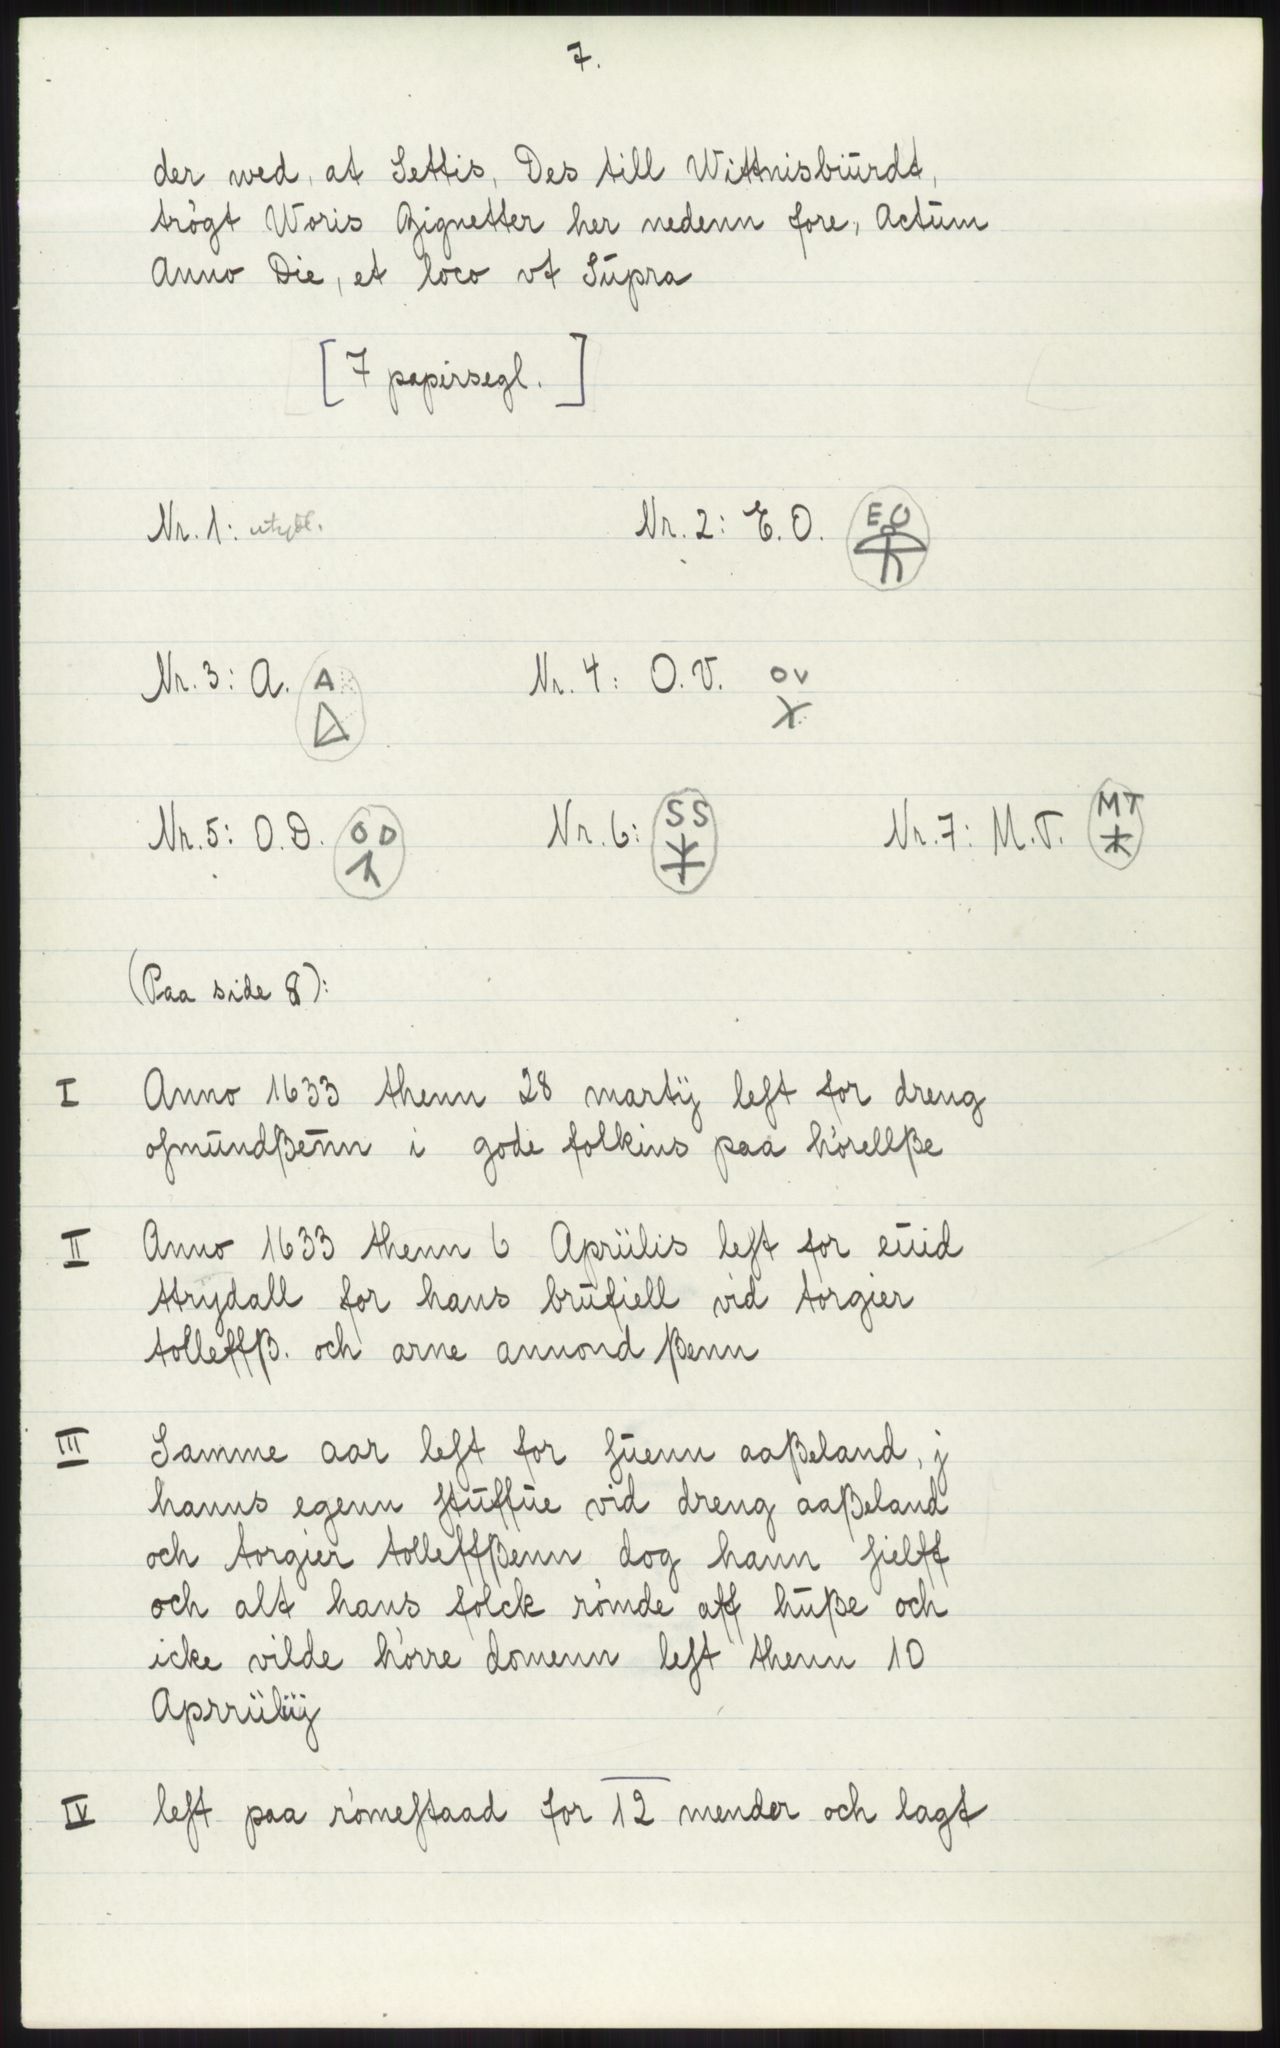 7.
der wed, at Settis, Des till Wittnisbiŭrdt,
trögt Woris Zignetter her nedenn fore, Actŭm
Anno Die, et loco vt Sŭpra
[7 papirsegl.]
Nr. 1: utydl. Nr. 2: E. O. EO
Nr. 3: A. A Nr. 4: O. V. OV
Nr. 5: O. D. OD Nr. 6: SS Nr. 7: M. T. MT
(Paa side 8):
I Anno 1633 thenn 28 martÿ lest for dreng
osmŭndßenn i gode folkins paa hörellße
II Anno 1633 thenn 6 Apriilis lest for eŭid
ttrydall for hans brŭfiell vid torgier
tolleffß. och arne annond ßenn
III Samme aar lest for sŭenn aaßeland, j
hanns egenn stŭffŭe vid dreng aaßeland
och torgier tolleffßenn dog hann sielff
och alt hans folck römde aff hŭße och
icke vilde hörre domenn lest thenn 10
Aprriilÿ
IV lest paa römestaad for 12 mender och lagt